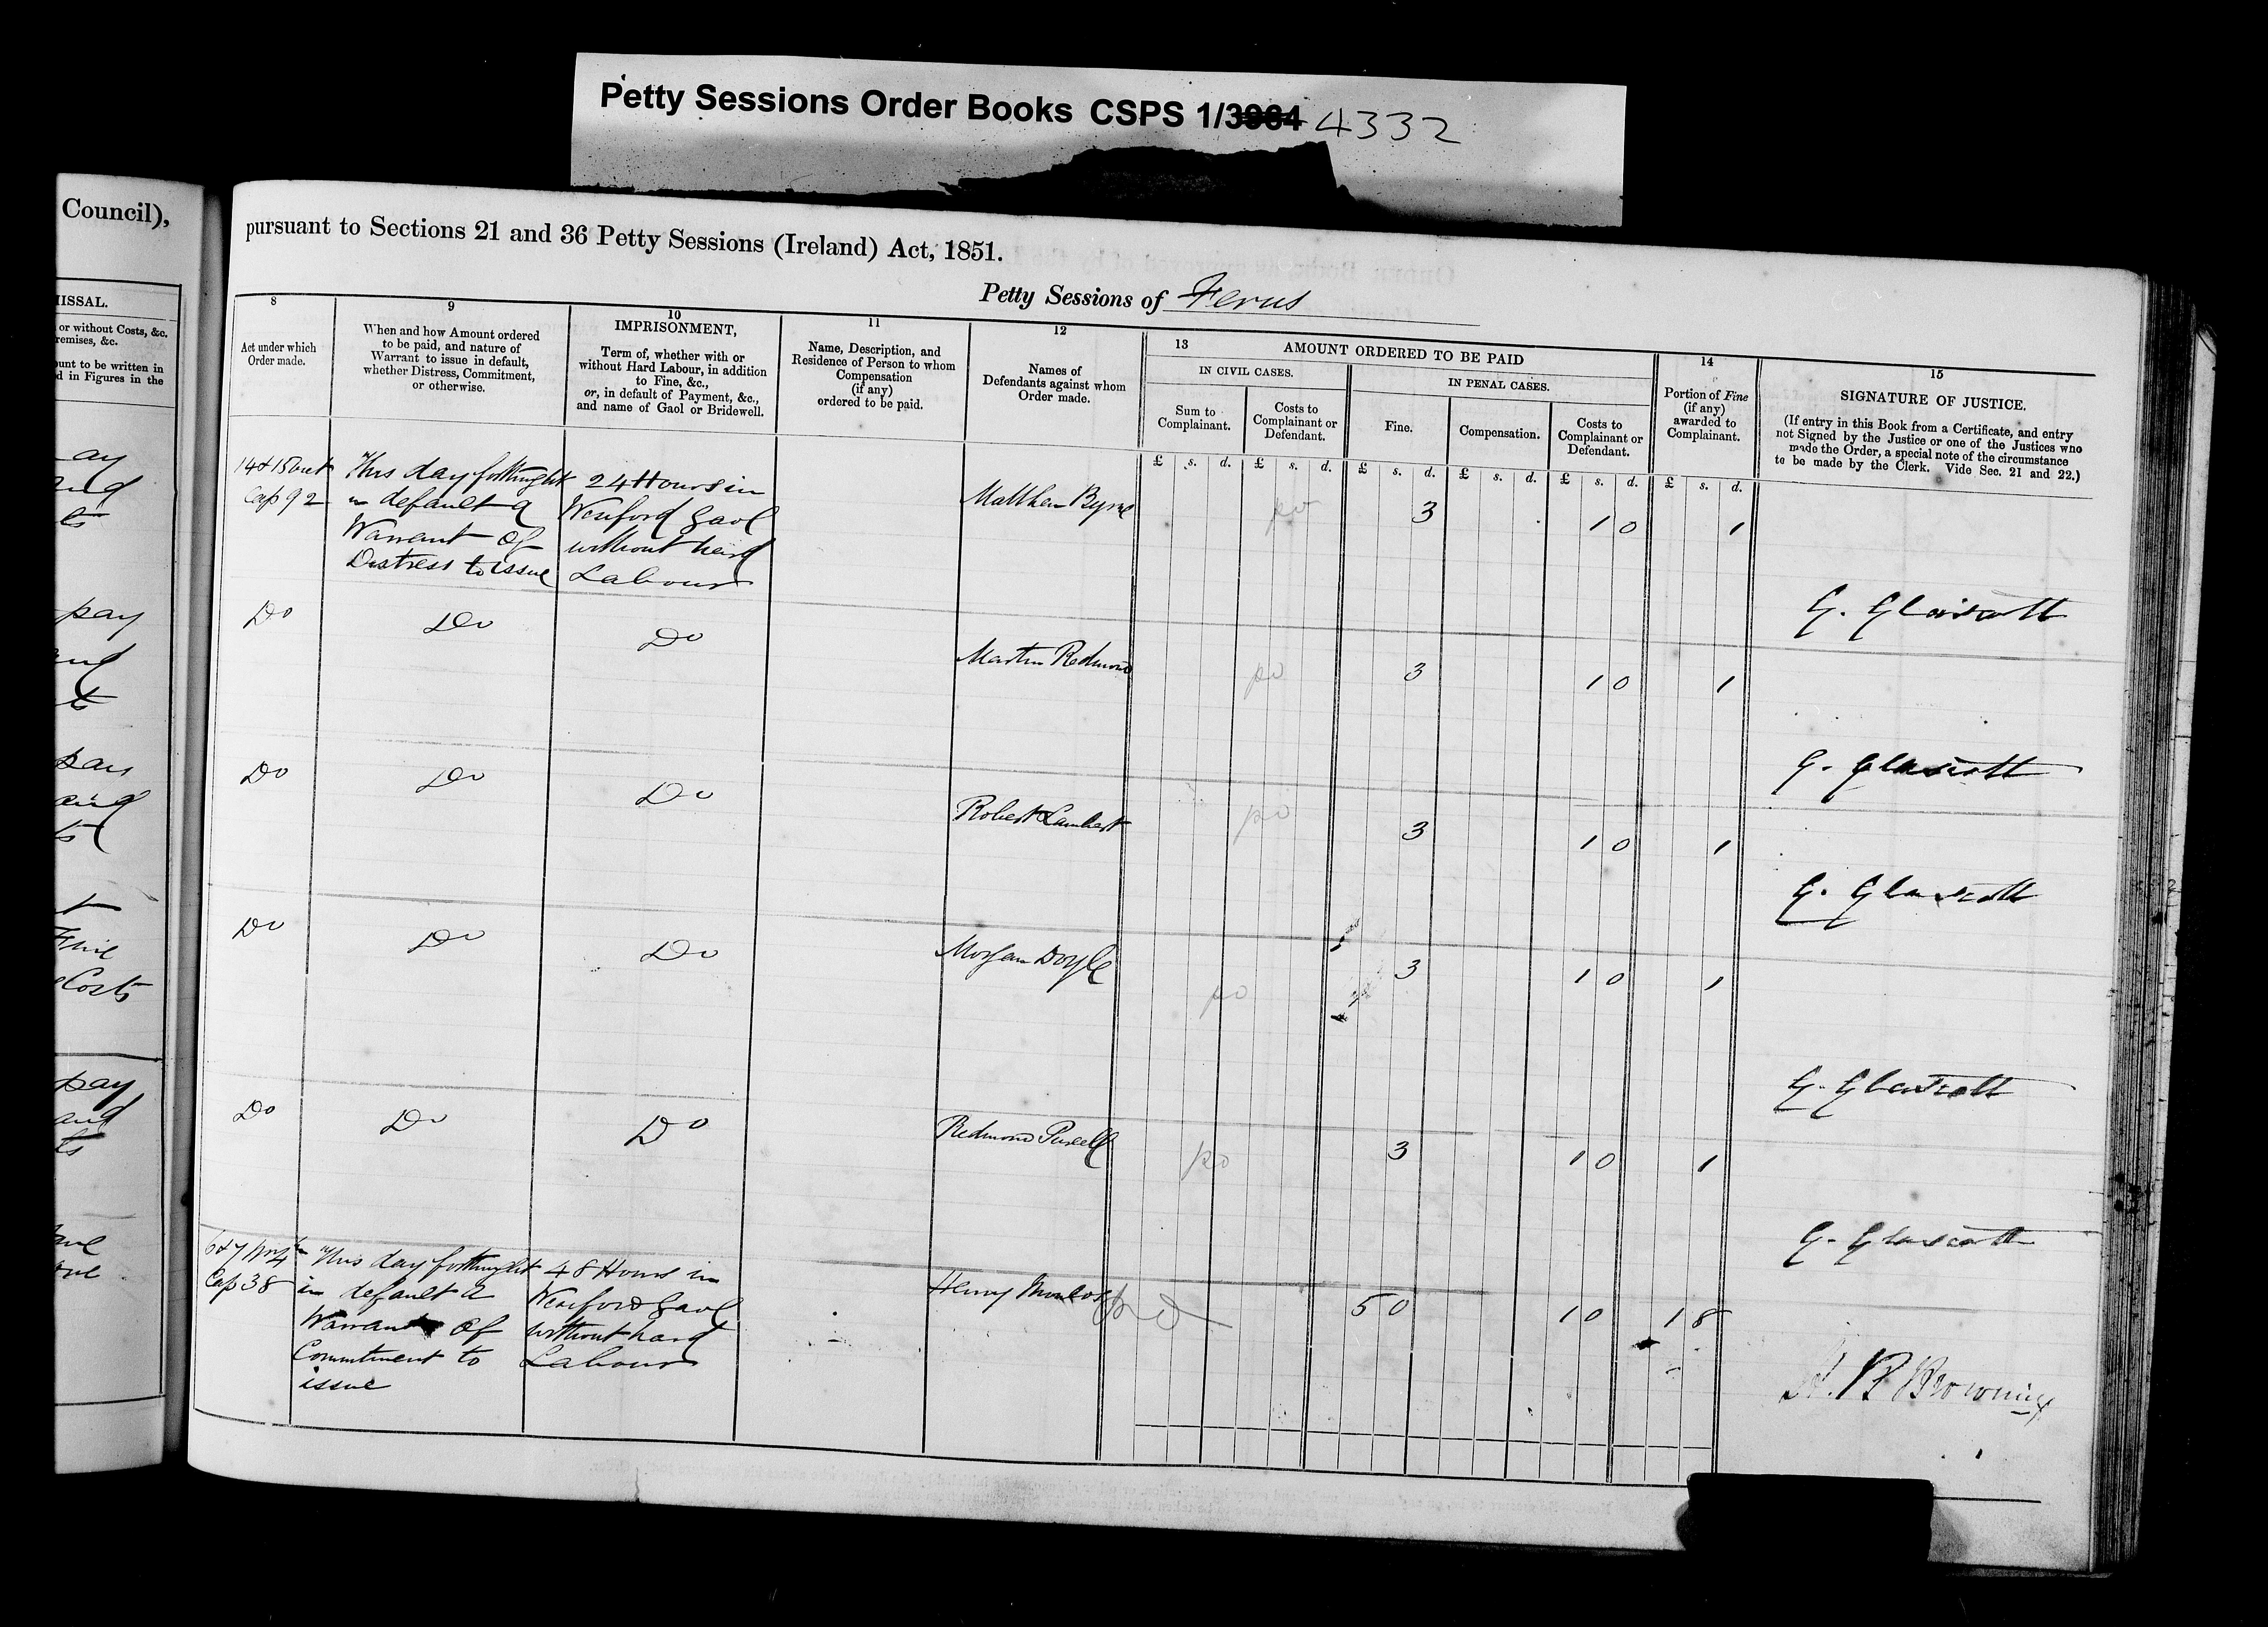 Petty Sessions Order Books CSPS 1/3984 4332
Council),
pursuant to Sections 21 and 36 Petty Sessions (Ireland) Act, 1851.
Petty Sessions of Ferns
MISSAL.
or without Costs, &c.
remises, &c.
ount to be written in
d in Figures in the
8
Act under which
Order made.
9
When and how Amount ordered
to be paid, and nature of
Warrant to issue in default,
whether Distress, Commitment,
or otherwise.
10
IMPRISONMENT,
Term of, whether with or
without Hard Labour, in addition
to Fine, &c.,
or, in default of Payment, &c.,
and name of Gaol or Bridewell.
11
Name, Description, and
Residence of Person to whom
Compensation
(if any)
ordered to be paid.
12
Names of
Defendants against whom
Order made.
13
AMOUNT ORDERED TO BE PAID
IN CIVIL CASES.
IN PENAL CASES.
Sum to
Complainant.
Costs to
Complainant or
Defendant.
Fine.
Compensation.
Costs to
Complainant or
Defendant.
14
Portion of Fine
(if any)
awarded to
Complainant.
15
SIGNATURE OF JUSTICE.
(If entry in this Book from a Certificate, and entry
not Signed by the Justice or one of the Justices who
made the Order, a special note of the circumstance
to be made by the Clerk. Vide Sec. 21 and 22.)
£ s. d. £ s. d. £ s. d. £ s. d. £ s. d. £ s. d.
14 & 15 Vict
Cap 92
This day forthnight
in default a
Warrant of
Distress to issue
24 Hours in
Wexford Gaol
without hard
Labour
Matthew Byrne
pd
3
1 0
1
G. Glascott
Do
Do
Do
Martin Redmond
pd
3
1 0
1
G. Glascott
Do
Do
Do
Robert Lambert
pd
3
1 0
1
G. Glascott
Do
Do
Do
Morgan Doyle
pd
3
1 0
1
G. Glascott
Do
Do
Do
Redmond Purcell
pd
3
1 0
1
G. Glascott
6 & 7
Cap 38
This day forthnight
in default a
Warrant of
Commitment to
issue
48 Hours in
Wexford Gaol
without hard
Labour
Henry
pd
5 0
1 0
1 8
Browning
ay
and
ts
pay
and
ts
pay
and
ts
Fine
Costs
pay
and
ts